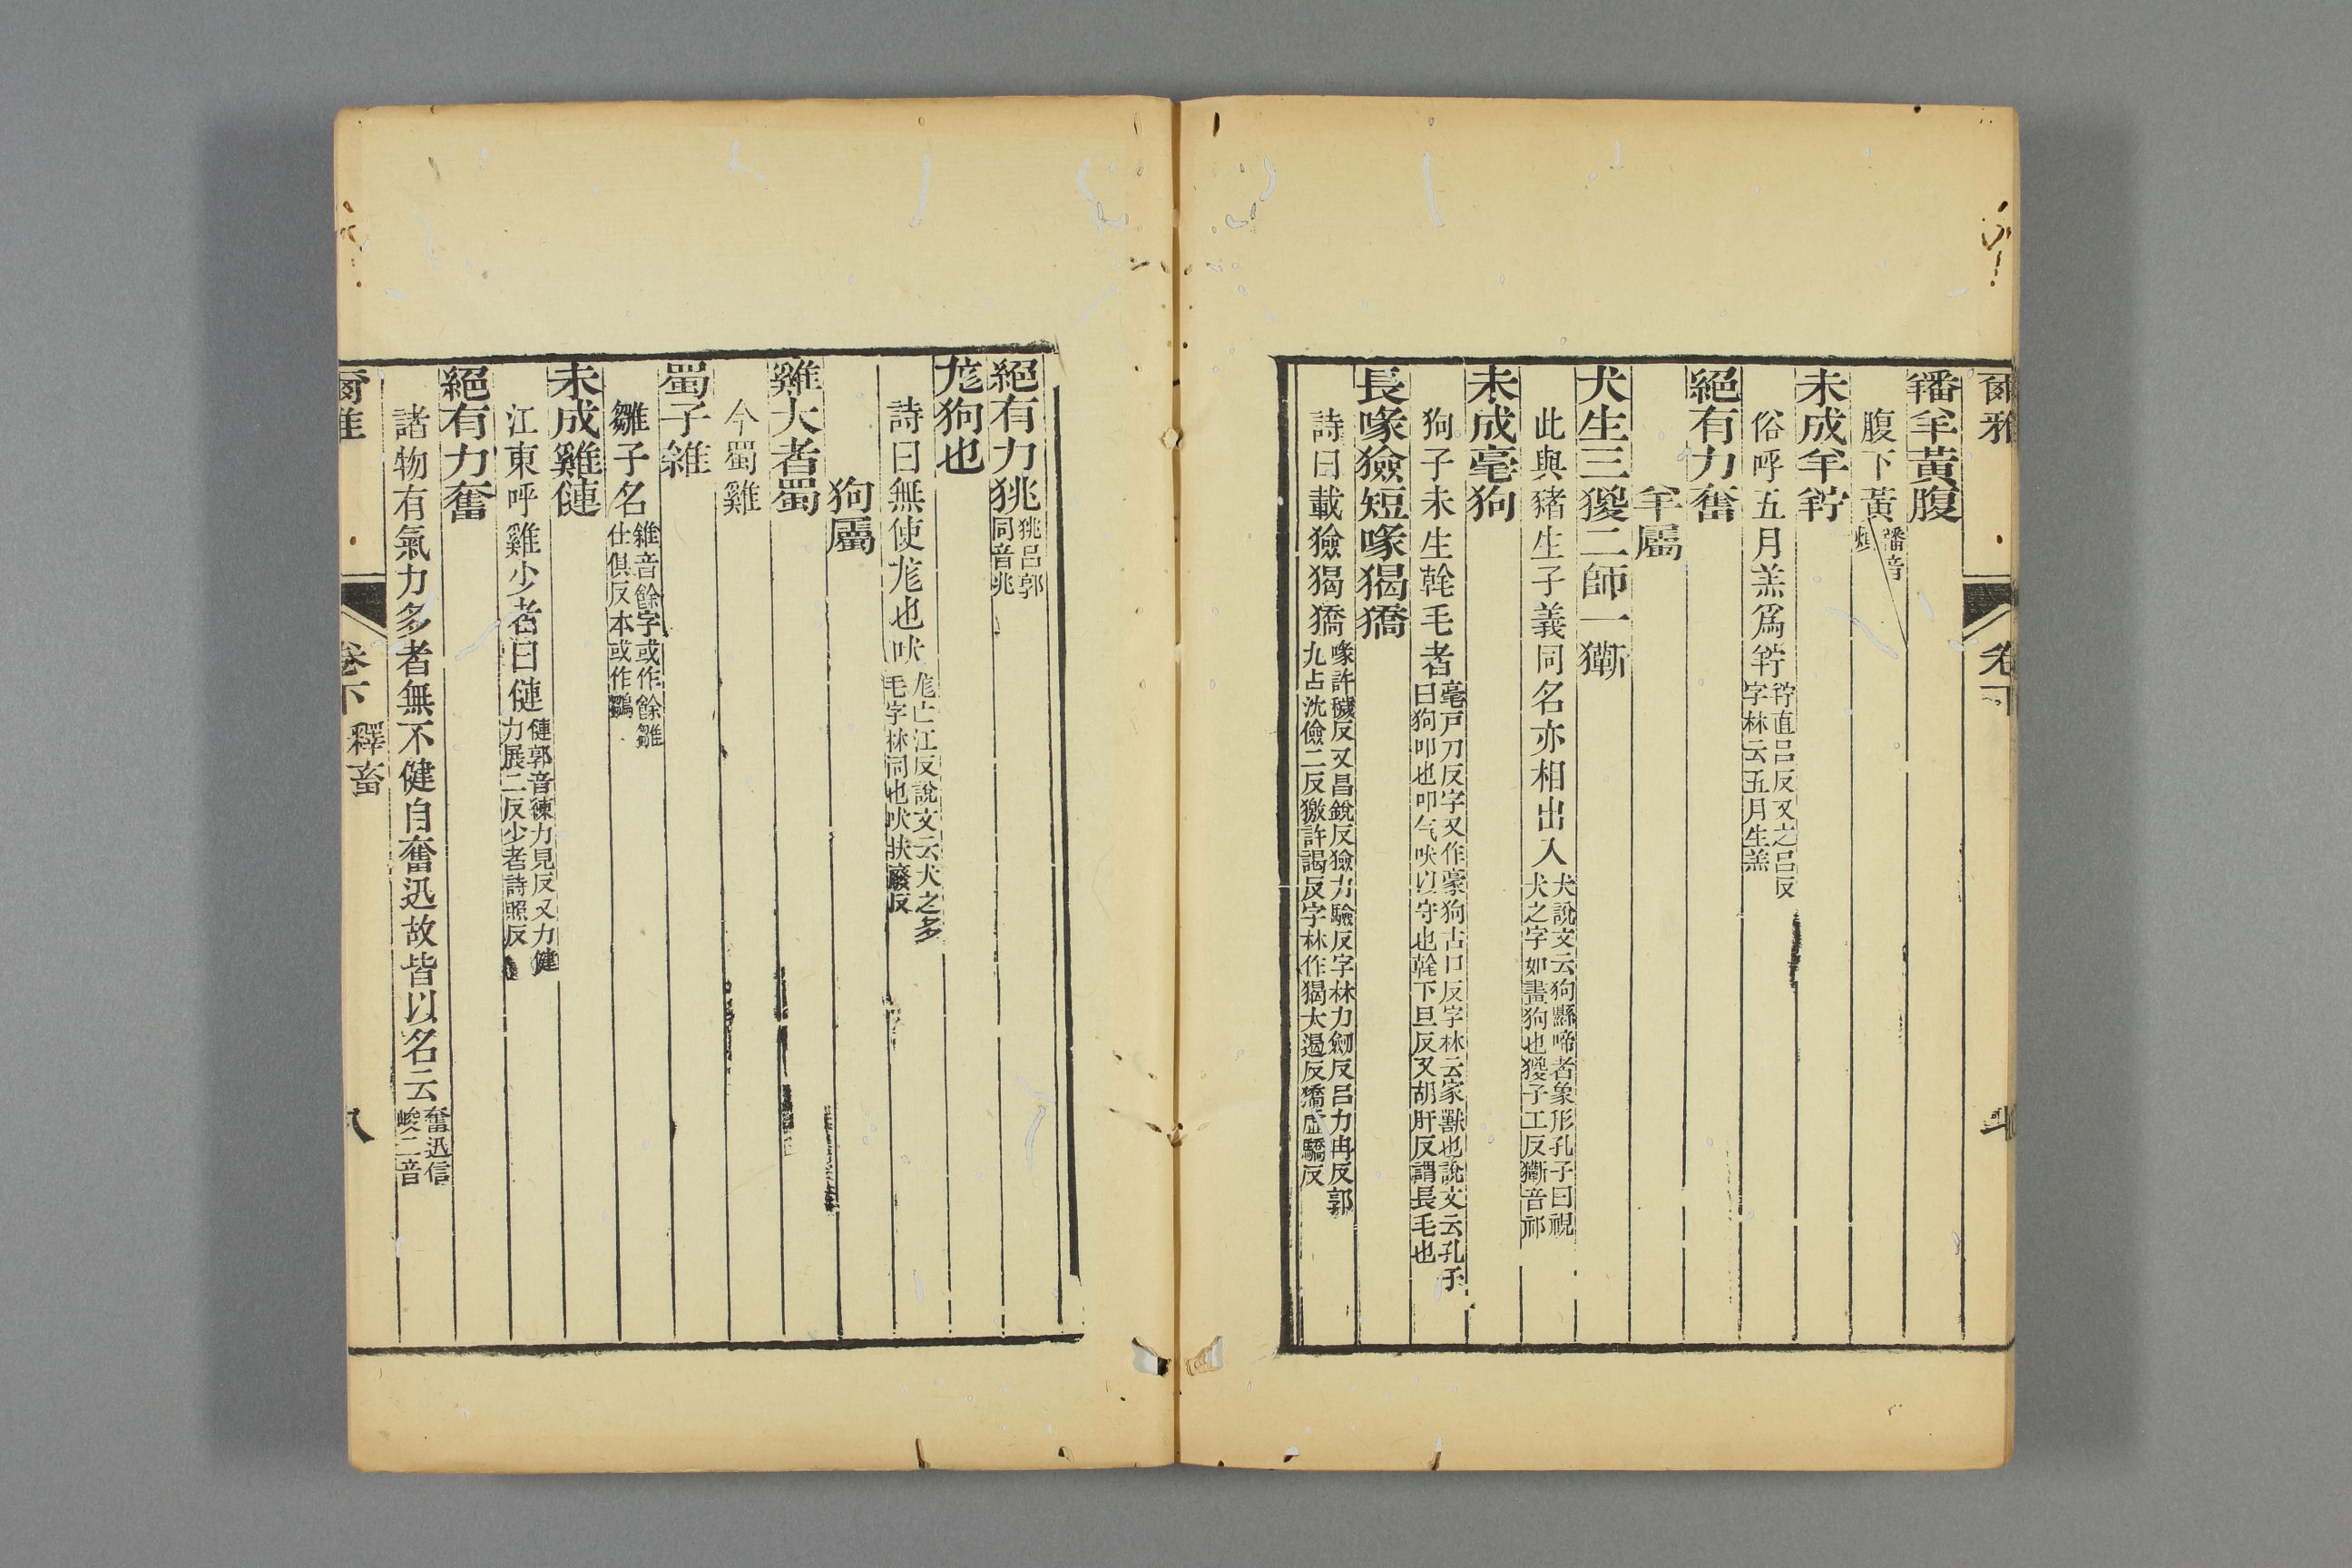 爾雅
卷下
羳羊黃腹
腹下黃羳音煩
未成羊羜
俗呼五月羔為羜羜直呂反又之呂反字林云五月生羔
絕有力奮
羊屬
犬生三猣二師一玂
此與豬生子義同名亦相出入犬說文云狗縣啼者象形孔子曰視犬之字如畫狗也猣子工反玂音祁
未成毫狗
狗子未生乾毛者毫戶刀反字又作豪狗古口反字林云家獸也說文云孔子曰狗叩也叩气吠以守也乾下旦反又胡肝反謂長毛也
長喙獫短喙猲獢
詩曰載獫猲獢喙許穢反又昌銳反獫力驗反字林力劒反呂力冉反郭九占沈儉二反猲許謁反字林作猲大遏反獢虛驕反
絕有力狣狣呂郭同音兆
尨狗也
詩曰無使尨也吠尨亡江反說文云犬之多毛字林同也吠狀廢反
狗屬
雞大者蜀
今蜀雞
蜀子雓
雛子名雓音餘字或作餘雛仕俱反本或作鶵
未成雞僆
江東呼雞少者曰僆僆郭音練力見反又力健力展二反少者詩照反
絕有力奮
諸物有氣力多者無不健自奮迅故皆以名云奮迅信峻二音
爾雅
卷下
釋畜
八